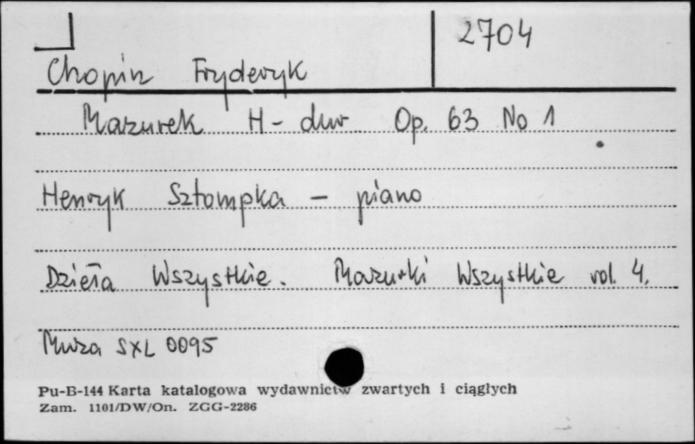 2704
Chopin Fryderyk
Mazurek H-dur Op. 63 No 1
Henryk Sztompka - piano
Dzieła Wszystkie. Mazurki Wszystkie vol. 4.
Muza SXL 0095
Pu-B-144 Karta katalogowa wydawnictw zwartych i ciągłych
Zam. 1101/DW/On. ZGG-2286